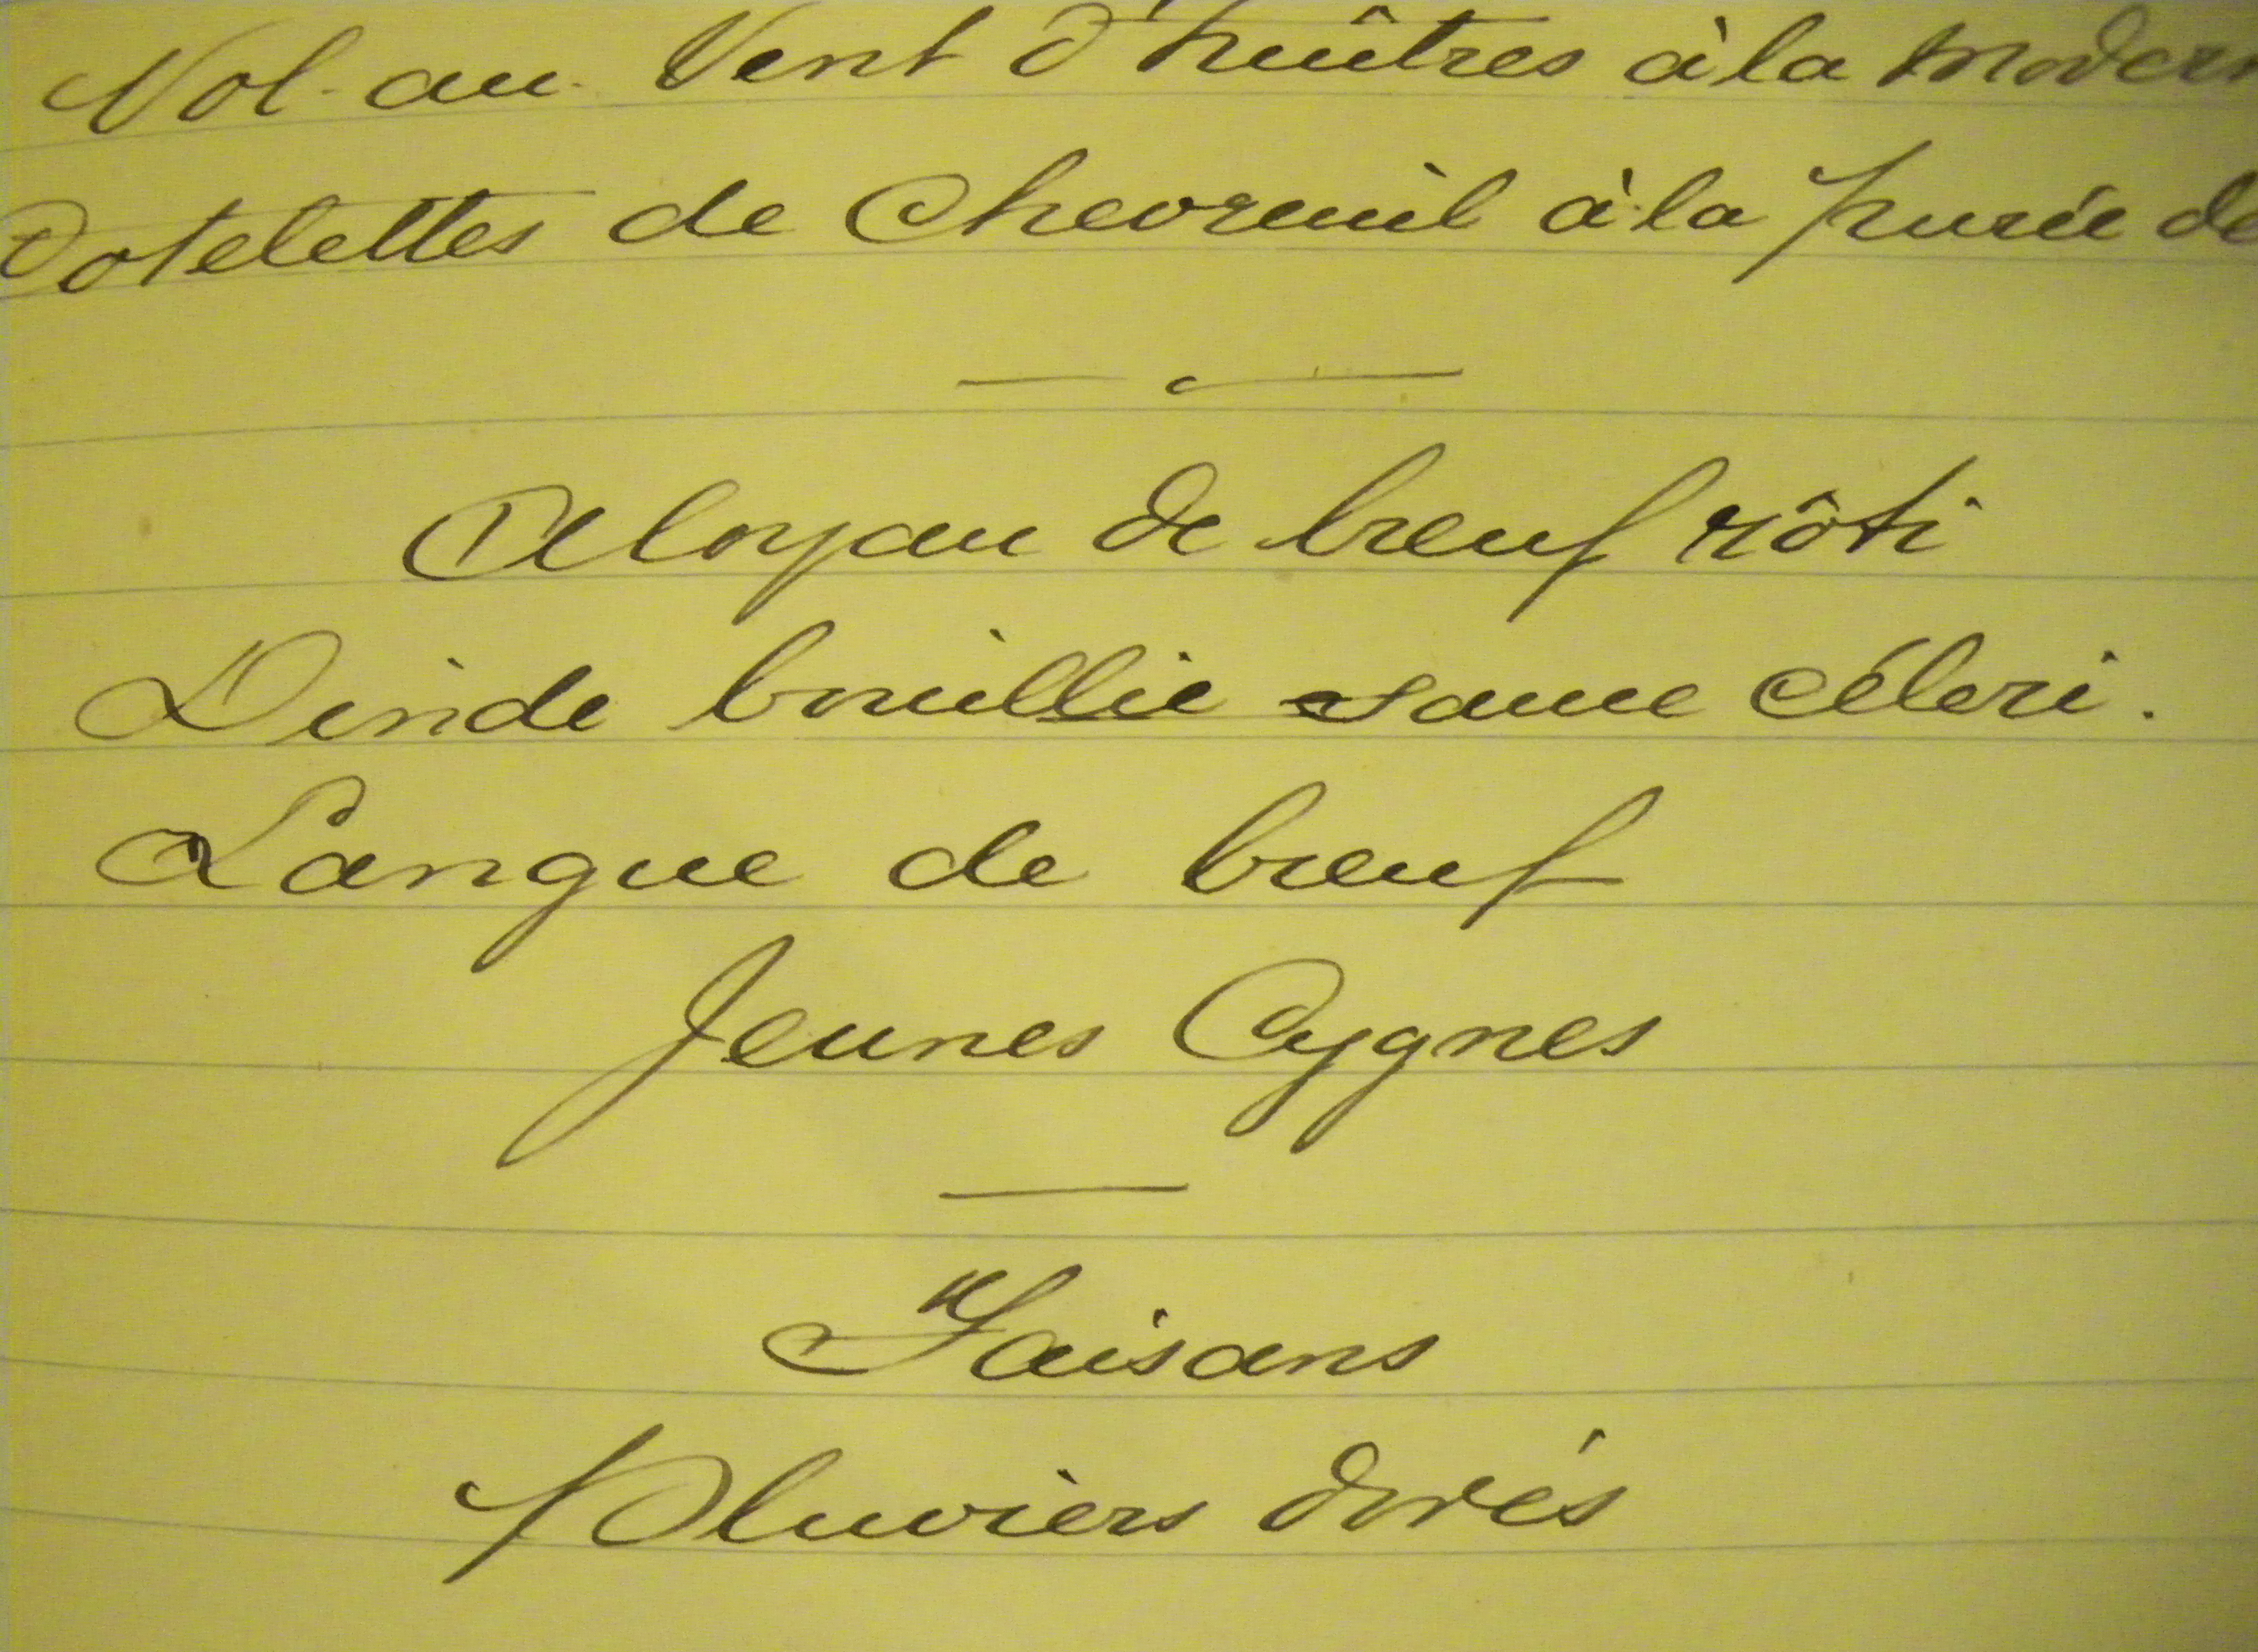 Vol-au-Vent d'huîtres à la modern
Cotelettes de Chevreuil à la purée de
Aloyau de bœuf rôti
Dinde bouillie sauce céleri.
Langue de bœuf
Jeunes Cygnes
Faisans
Pluviers dorés